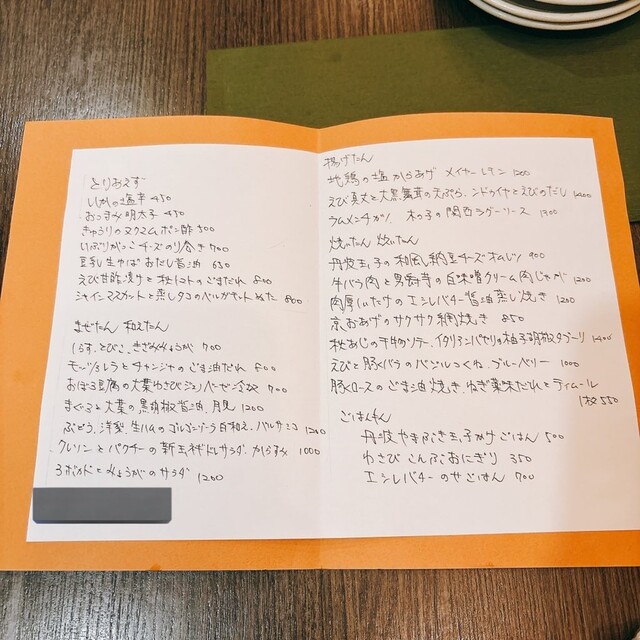 とりあえず
いかの塩辛 450
おつまみ明太子 450
きゅうりの ポン酢 500
いぶりがっこチーズのり巻き 700
豆乳生ゆば おだし醤油 630
えび甘酢漬けと 桃トマトのごまだれ 800
シャインマスカットと蒸しタコの ぬた 800
まぜたん 和えたん
しらす、とびこ、きざみみょうが 700
モッツァレラとチャンジャのごま油だれ 800
おぼろ豆腐の大葉わさびジェノベーゼ冷奴 700
まぐろと大葉の黒胡椒醤油、月見 1200
ぶどう、洋梨、生ハムのゴルゴンゾーラ白和え、バルサミコ 1200
クレソンとパクチーの新玉ねぎドレサラダ、からすみ 1000
アボカドとみょうがのサラダ 1200
揚げたん
地鶏の塩からあげ メイヤーレモン 1200
えび真丈と大黒舞茸の天ぷら、ンドゥイヤとえびのだし 1400
ラムメンチカツ 木の子の関西ラグーソース 1300
焼いたん 炊いたん
丹波玉子の和風納豆チーズオムレツ 900
牛バラ肉と男爵芋の白味噌クリーム肉じゃが 1200
肉厚しいたけのエシレバター醤油蒸し焼き 1200
京おあげのサクサク網焼き 850
松あじの ソテー、イタリアンパセリと柚子胡椒タブーリ 1400
えびと豚バラのバジルつくね、ブルーベリー 1000
豚ロースのごま油焼き、ねぎ薬味だれとティムール
1枚 550
ごはんもん
丹波やまぶき玉子かけごはん 500
わさび こんぶおにぎり 350
エシレバターの ごはん 700